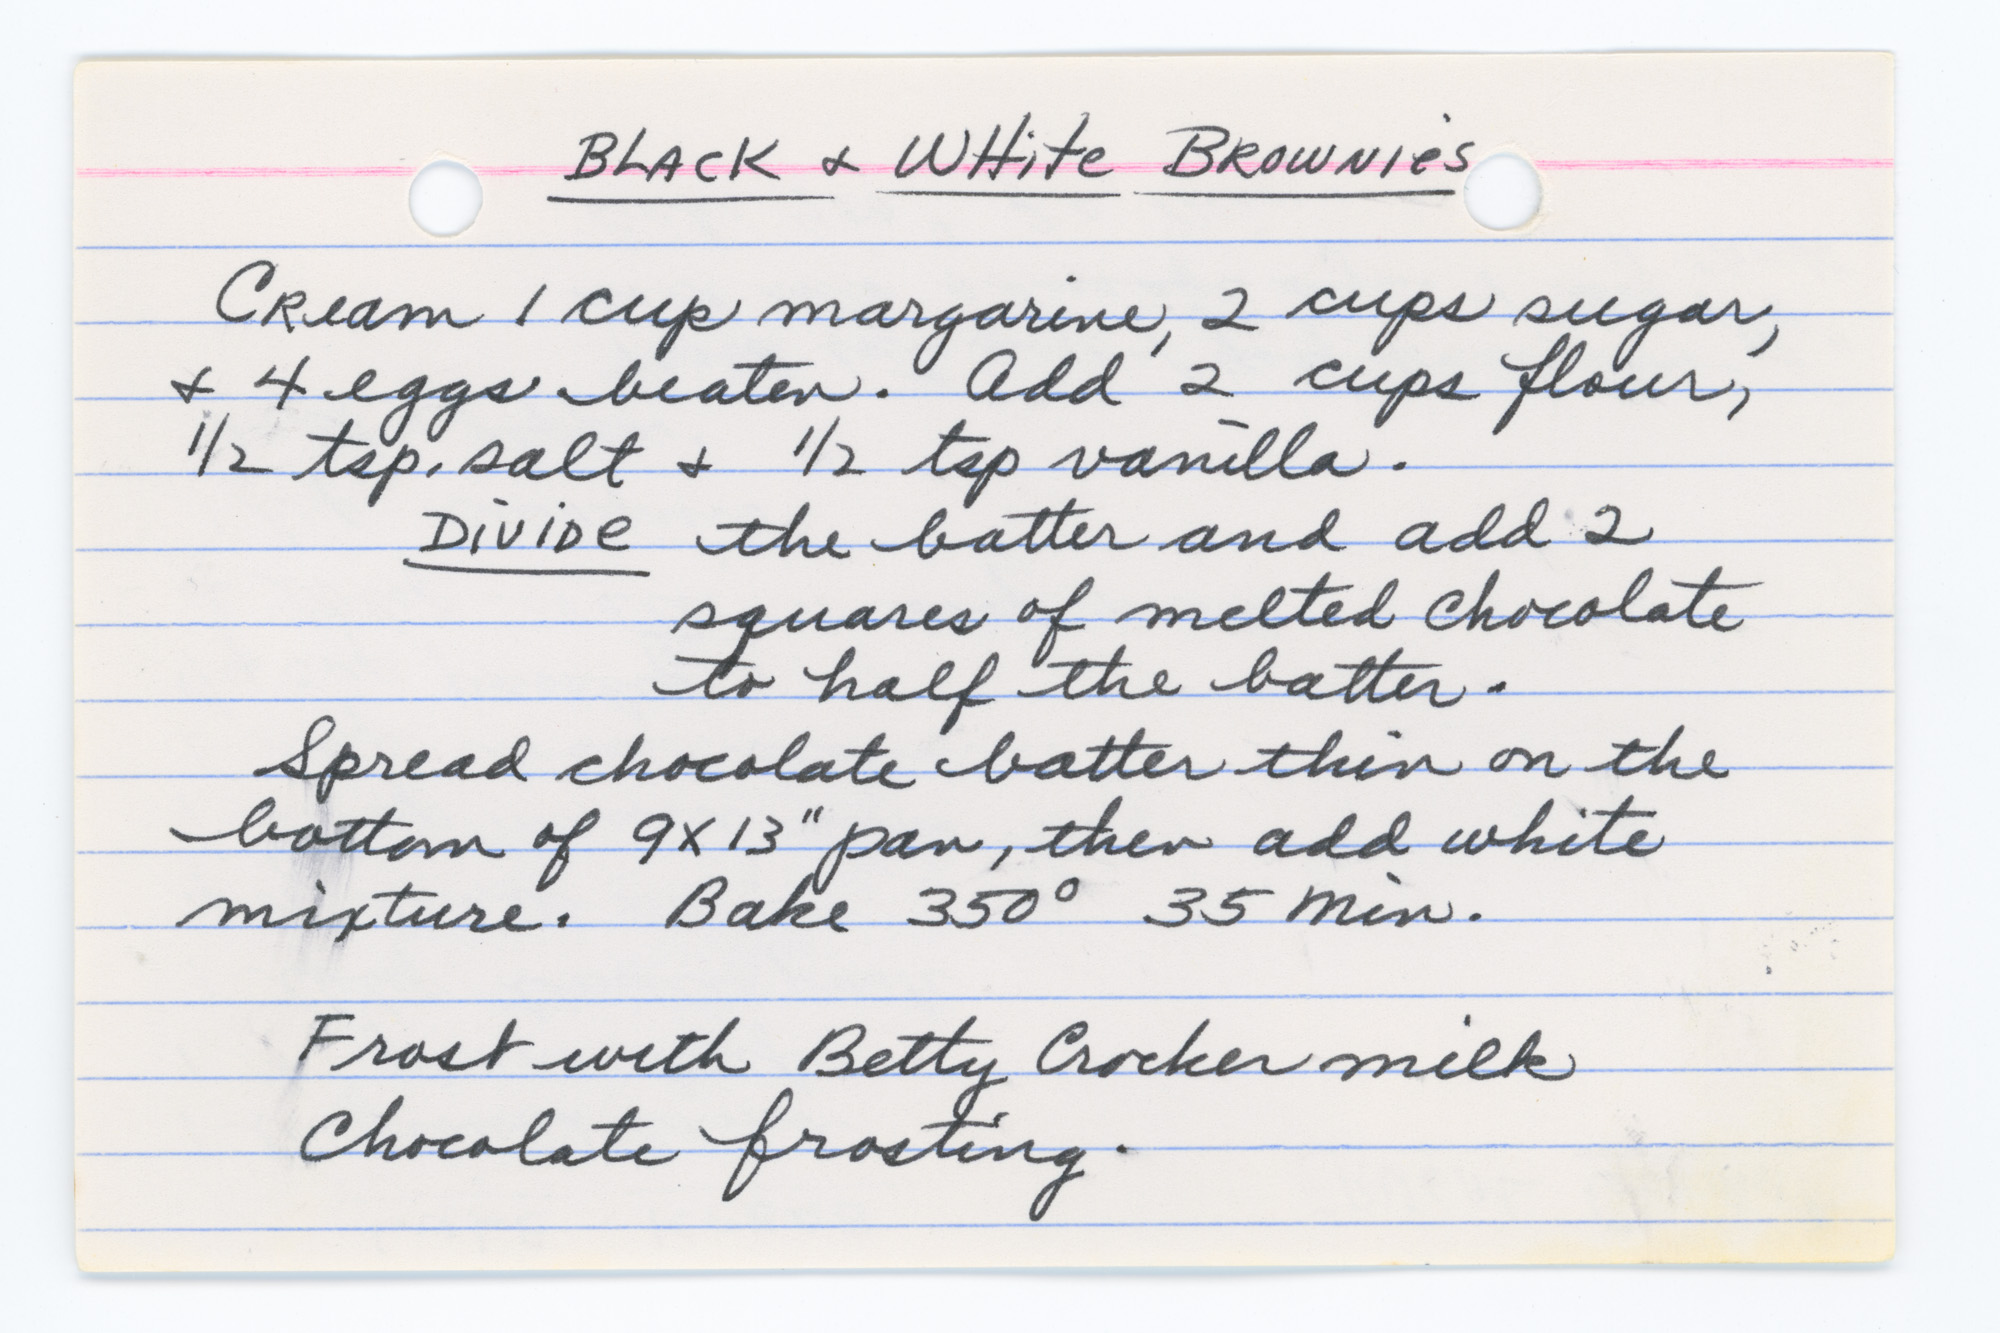 BLACK & WHITE BROWNIES
Cream 1 cup margarine, 2 cups sugar,
& 4 eggs beaten. Add 2 cups flour,
1/2 tsp. salt & 1/2 tsp vanilla.
DIVIDE the batter and add 2
squares of melted chocolate
to half the batter.
Spread chocolate batter thin on the
bottom of 9x13" pan, then add white
mixture. Bake 350° 35 min.
Frost with Betty Crocker milk
Chocolate frosting.